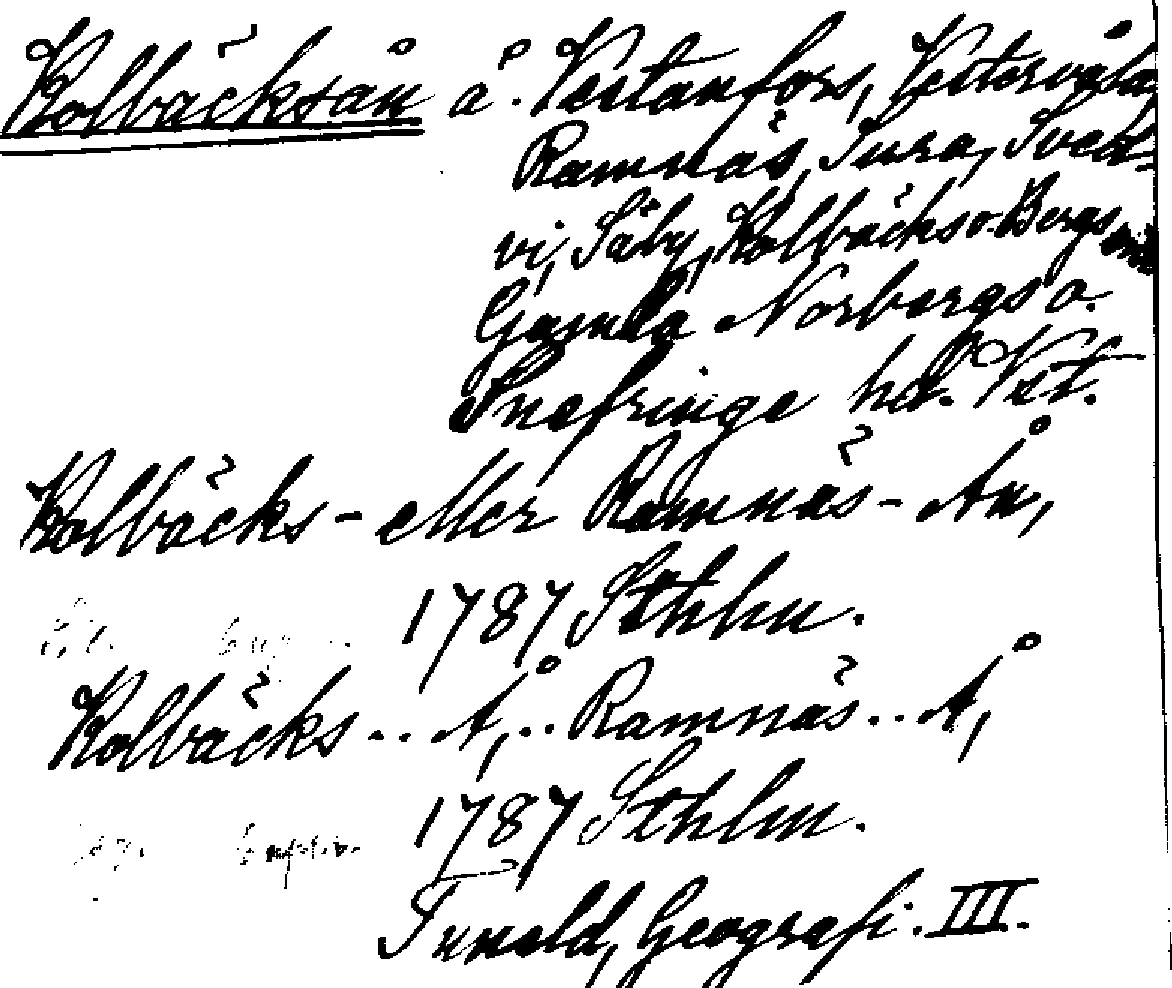 Kolbäcksån å. Vestanfors, Vestervåla,
Ramnäs, Sura, Sved-
vi, Säby, Kolbäcks o. Bergs
Gamla Norbergs o.
Snefringe hd. Vst.
Kolbäcks- eller Ramnäs-Ån,
1787 Sthlm.
Kolbäcks.. Å,.. Ramnäs.. Å,
1787 Sthlm.
Tuneld, Geografi. III.